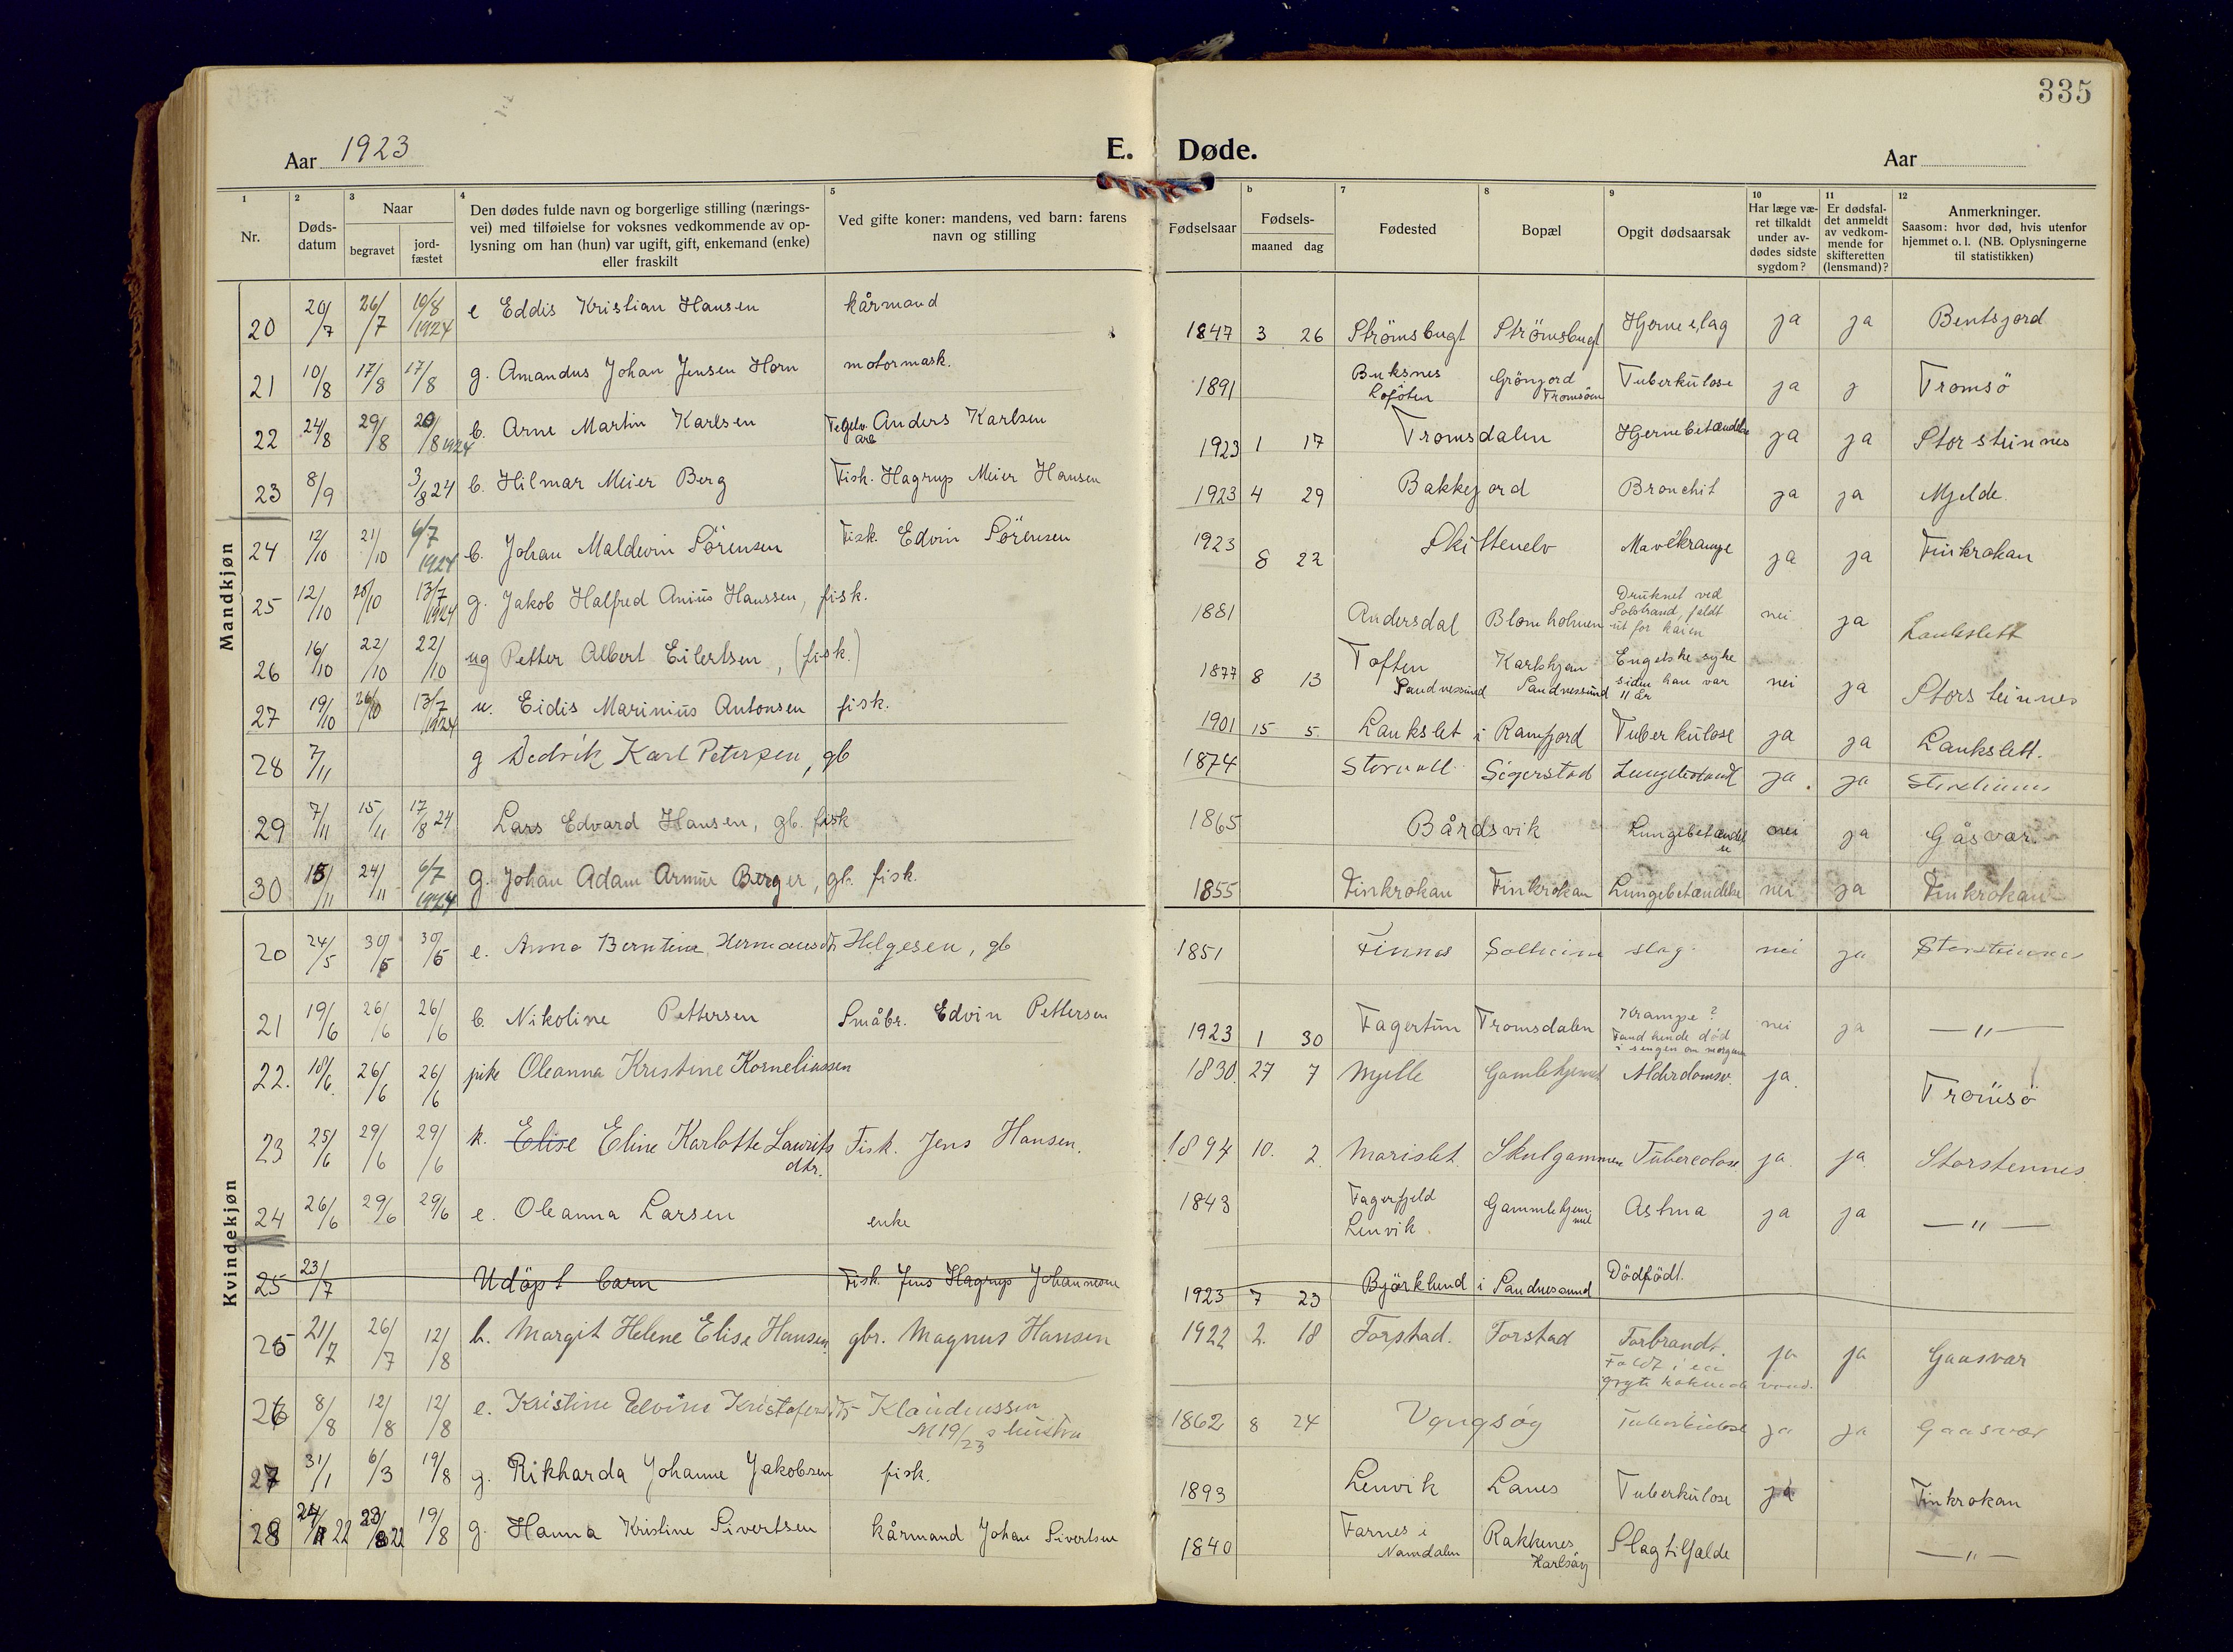 335
Aar 1923 E. Døde. Aar
1 2 3 4 5 6 7 8 9 10 11 12
Nr.
Døds-
datum
Naar
begravet
jord-
fæstet
Den dødes fulde navn og borgerlige stilling (nærings-
vei) med tilføielse for voksnes vedkommende av op-
lysning om han (hun) var ugift, gift, enkemand (enke)
eller fraskilt
Ved gifte koner: mandens, ved barn: farens
navn og stilling
Fødselsaar
Fødsels-
maaned dag
Fødested
Bopæl
Opgit dødsaarsak
Har læge væ-
ret tilkaldt
under av-
dødes sidste
sygdom?
Er dødsfal-
det anmeldt
av vedkom-
mende for
skifteretten
(lensmand)?
Anmerkninger.
Saasom: hvor død, hvis utenfor
hjemmet o. l. (NB. Oplysningerne
til statistikken)
Mandkjøn
20 20/7 26/7 10/8 1924 e Eddis Kristian Hansen kårmand 1847 3 26 Strömsbugt Strömsbugt Hjerneslag ja ja Bentsjord
21 10/8 17/8 17/8 g. Amandus Johan Jensen Horn motormask. 1891 Buksnes Lofoten Grönjord Tromsöen Tuberkulose ja j Tromsö
22 24/8 29/8 20/8 1924 b. Arne Martin Karlsen Anders Karlsen 1923 1 17 Tromsdalen Hjernebetændelse ja ja Storsteinnes
23 8/9 3/8 24 b. Hilmar Meier Berg Fisk. Hagrup Meier Hansen 1923 4 29 Bakkejord Bronchit ja ja Mjelde
24 12/10 21/10 6/7 1924 b. Johan Maldevin Sörensen Fisk. Edvin Sörensen 1923 8 22 Skittenelv Mavekrampe ja ja Finkrokan
25 12/10 20/10 13/7 1924 g. Jakob Halfred Anius Hanssen, fisk. 1881 Andersdal Blomholmen Druknet ved Solstrand, faldt ut for kaien nei ja Laukslett
26 16/10 22/10 22/10 ug Petter Albert Eilertsen, (fisk.) 1877 8 13 Toften Sandnessund Karlshjem Sandnessund Engelske syke siden han var 11 år nei ja Storsteinnes
27 19/10 26/10 13/7 1924 u. Eidis Marinius Antonsen fisk. 1901 15 5 Laukslet i Ramfjord Tuberkulose ja ja Laukslett.
28 7/11 g Dedrik Karl Petersen, gb 1874 Storvoll Sigerstad ja. ja Storsteinnes
29 7/11 15/11 17/8 24 Lars Edvard Hansen, gb. fisk 1865 Bårdsvik Lungebetændelse nei ja Gåsvær
30 15/11 24/11 6/7 1924 g. Johan Adam Armue Berger, gb. fisk. 1855 Finkrokan Finkrokan Lungebetændelse nei ja Finkrokan
Kvindekjøn
20 24/5 30/5 30/5 e. Anna Berntine Hermansdtr Helgesen, gb 1851 Finnes Solheim slag nei ja Storsteinnes
21 19/6 26/6 26/6 b. Nikoline Pettersen Småbr. Edvin Pettersen 1923 1 30 Fagertun Tromsdalen Krampe? Fand hende död i sengen om morgenen nei ja — " —
22. 18/6. 26/6 26/6 pike Oleanna Kristine Korneliussen 1830. 27 7 Mjelle Gamlehjemmet Alderdomsv. ja. Tromsö
23 25/6 29/6 29/6 k. Elise Eline Karlotte Laurits dtr. Fisk. Jens Hansen. 1894 10. 2. Marislet. Skulgammen Tubercolose ja. ja Storstennes.
24 26/6 29/6 29/6 e. Oleanna Larsen enke 1843 Fagerfjeld Lenvik. Gammlehjemmet Astma ja ja — " —
25 23/7 Udöpt barn Fisk. Jens Hagrup Johannesen 1923 7 23 Björklund i Sandnessund Dödfödt.
25 21/7 26/7 12/8 b. Margit Helene Elise Hansen gbr. Magnus Hansen 1922 2. 18 Torstad. Torstad Forbrandt. Faldt i en gryte kokende vand. ja ja Gaasvær
26 8/8 12/8 12/8 e. Kristine Elvine Kristofersdtr Klaudiussen M 19/23 s hustru 1862 8 24 Vengsøy Tuberkulose ja ja Gaasvær
27 31/1 6/3 19/8 g. Rikharda Johanne Jakobsen fisk. 1893 Lenvik Lanes Tuberkulose ja Finkrokan
28 24/ 22 23/8 22 19/8 g. Hanna Kristine Sivertsen kårmand Johan Sivertsen 1840 Farnes i Namdalen Rakkenes Karlsöy Slagtilfælde — " —